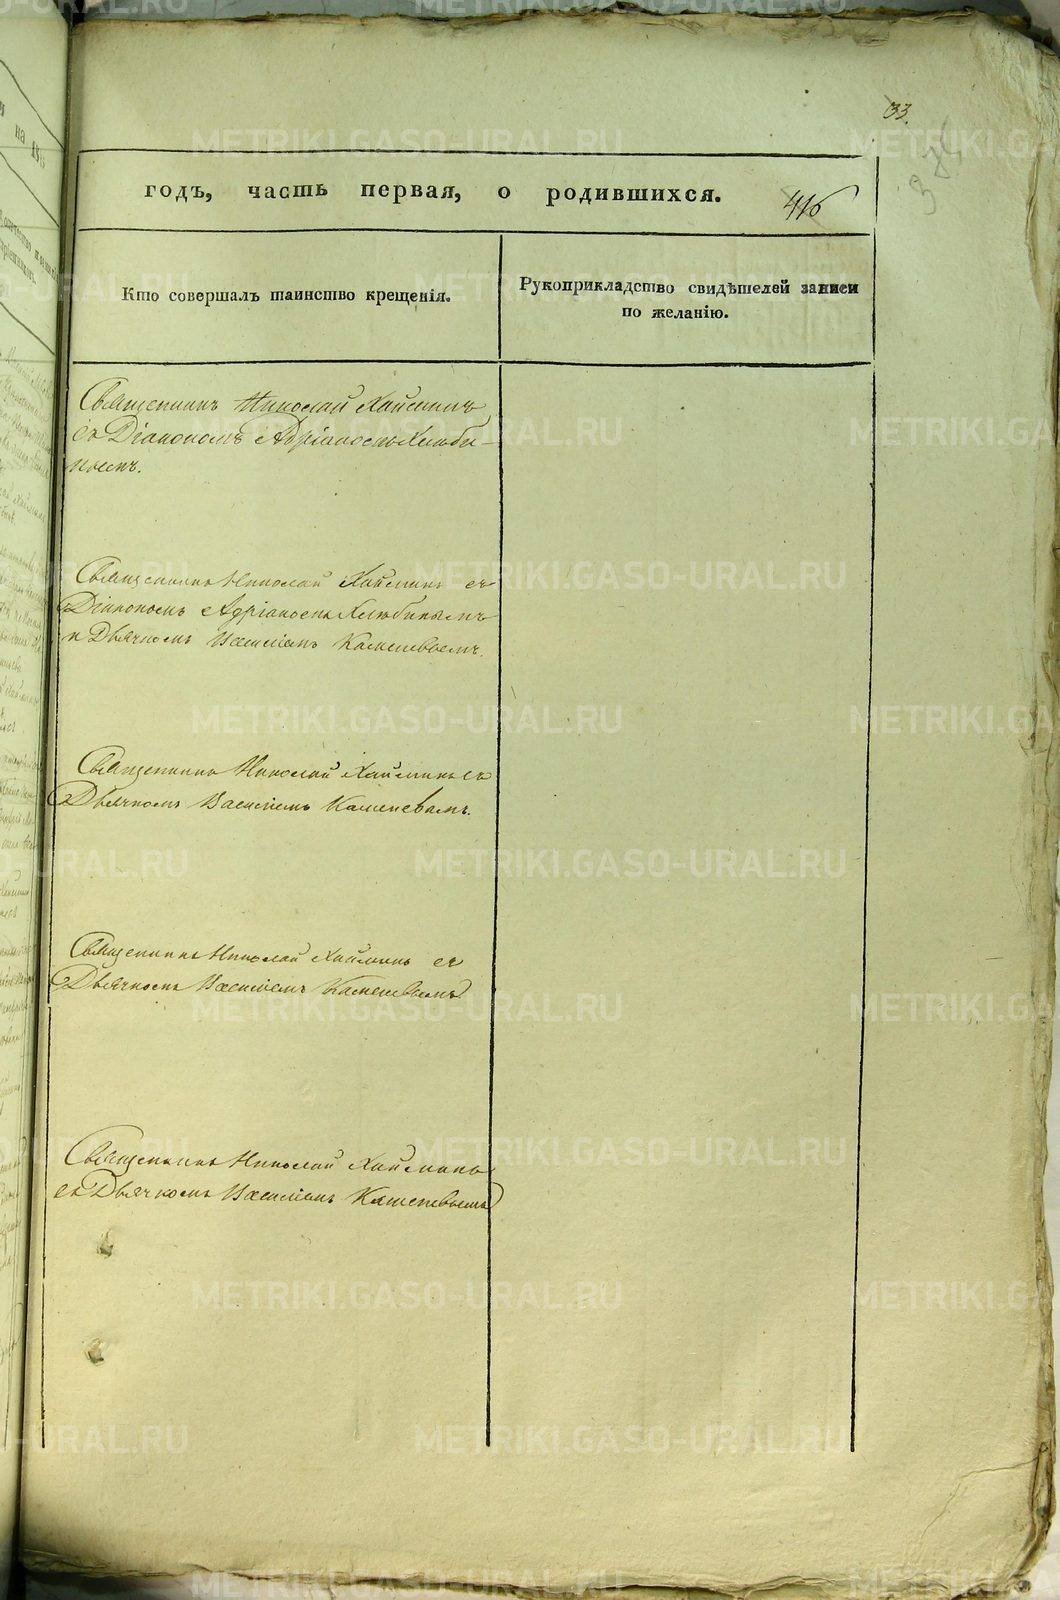 33.
годъ, часть первая, о родившихся. 416
Кто совершалъ таинство крещенія.
Рукоприкладство свидѣтелей записи
по желанію.
Священникъ Николай Хаймин
съ Діакономъ Адріаномъ Хлюби-
нымъ.
Священникъ Николай Хайминъ съ
Діакономъ Адріаномъ Хлюбинымъ
и Дьячкомъ Василіемъ Каменевымъ.
Священникъ Николай Хайминъ съ
Дьячкомъ Василіемъ Каменевымъ.
Священникъ Николай Хайминъ съ
Дьячкомъ Василіемъ Каменевымъ
Священникъ Николай Хайминъ
съ Дьячкомъ Василіемъ Каменевымъ
METRIKI.GASO-URAL.RU